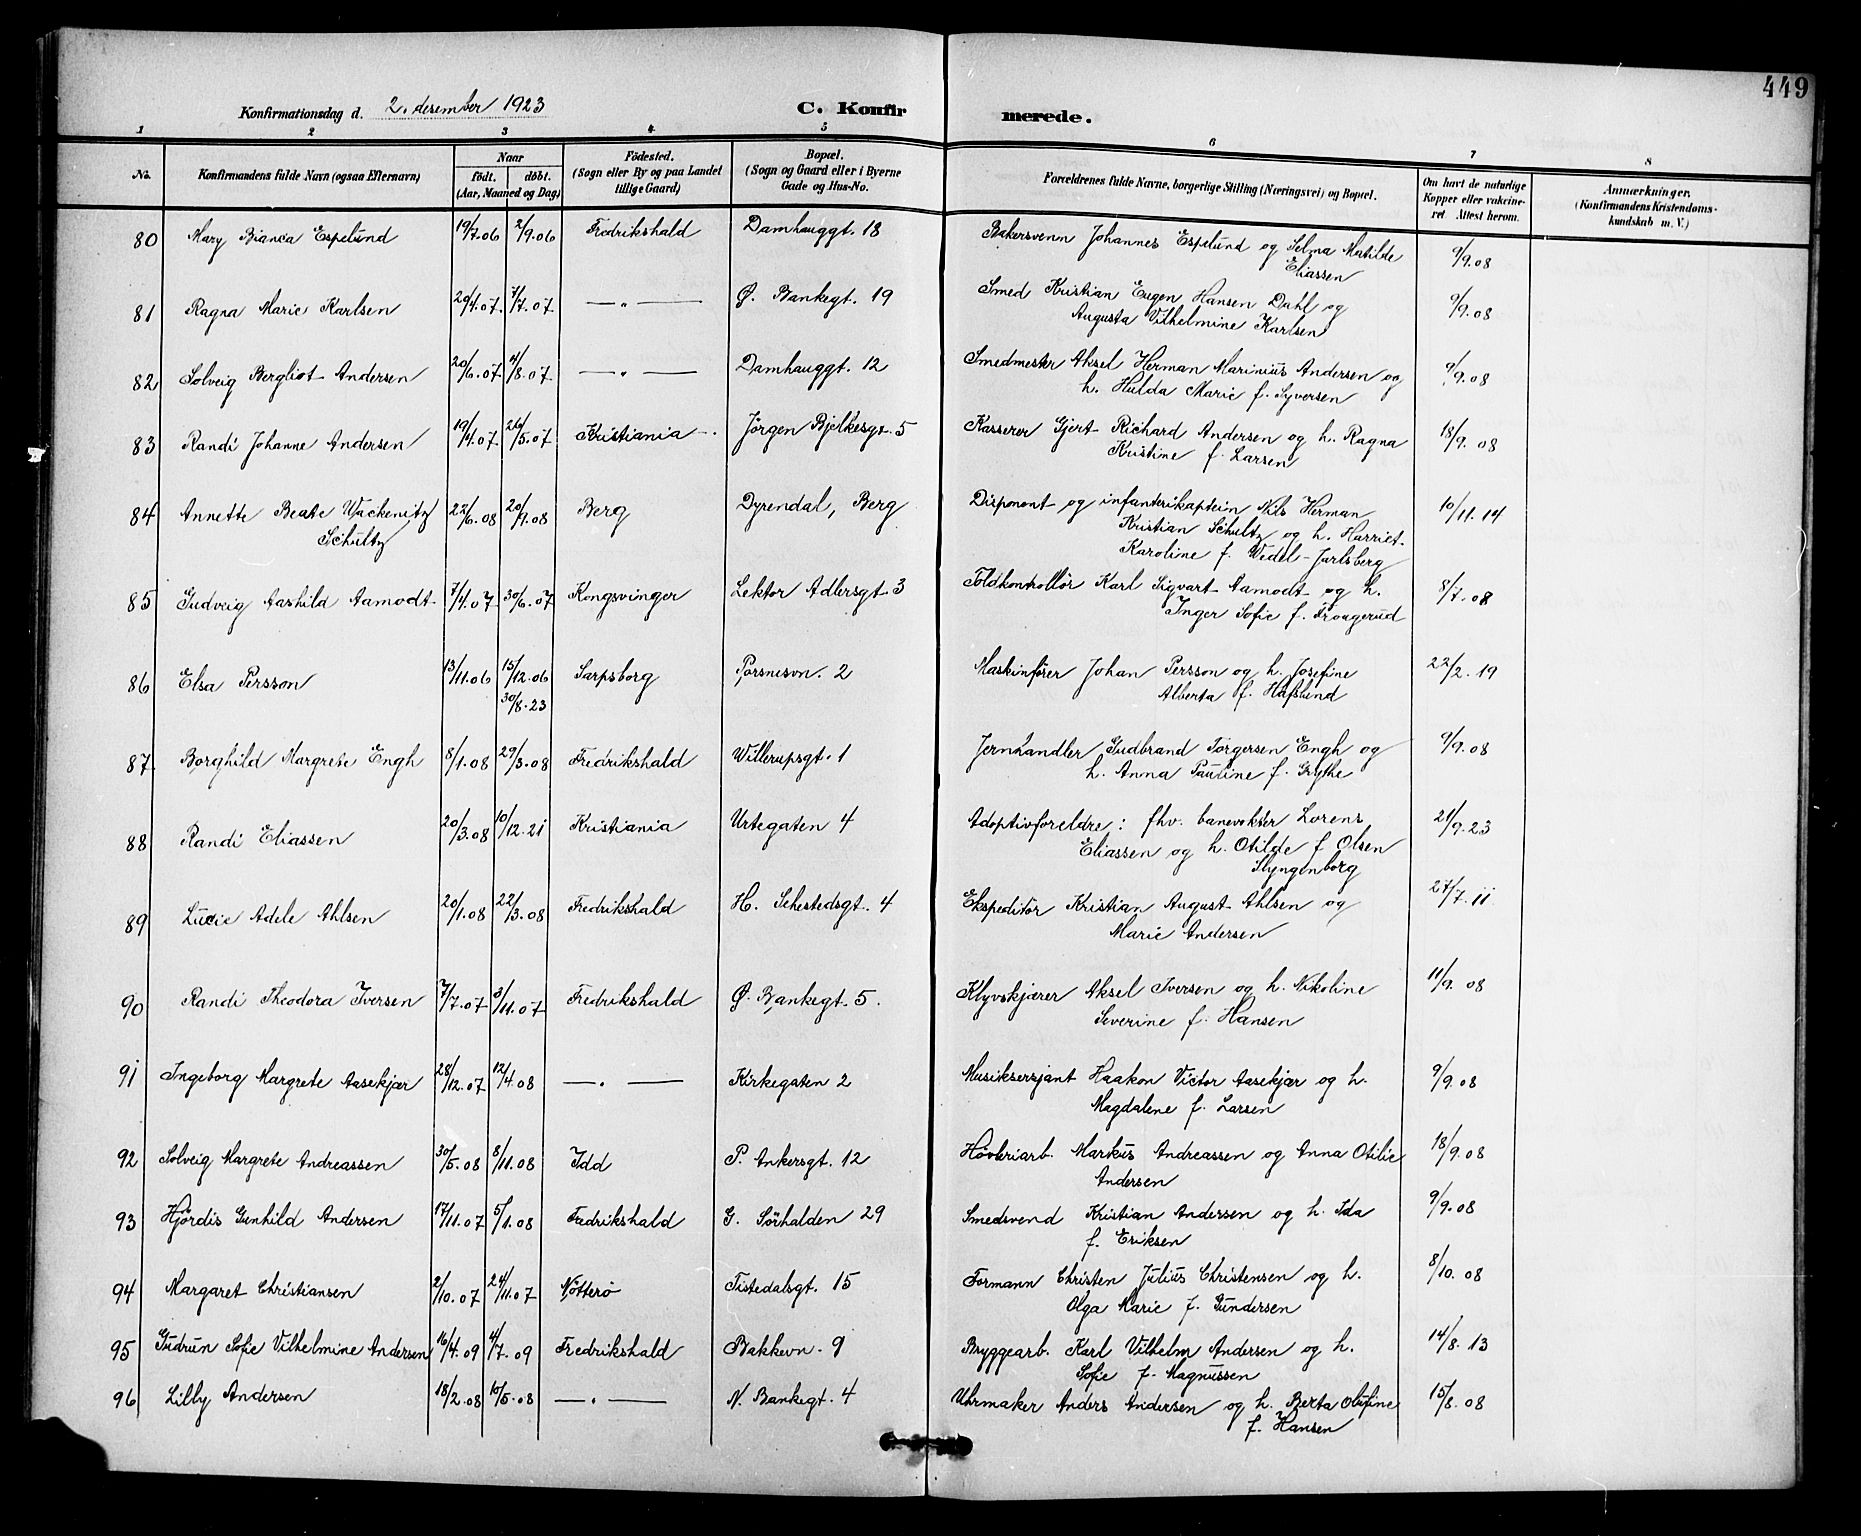 449
Konfirmationsdag d. 2. desember 1923 C. Konfirmerede.
1 2 3 4 5 6 7 8
No. Konfirmandens fulde Navn (ogsaa Efternavn) Naar født. døbt. (Aar, Maaned og Dag) Fødested. (Sogn eller By og paa Landet tillige Gaard) Bopæl. (Sogn og Gaard eller i Byerne Gade og Hus-No. Forældrenes fulde Navne, borgerlige Stilling (Næringsvei) og Bopæl. Om havt de naturlige Kopper eller vakcineret Attest herom. Anmærkninger. (Konfirmandens Kristendomskundskab m. V.)
80 Mary Bianca Espelund 19/7.06 2/9.06 Fredrikshald Damhauggt. 18 Bakersvenn Johannes Espelund og Selma Matilde 9/9.08
Eliassen
81 Ragna Marie Karlsen 20/4.07 7/7.07 — „ — Ø. Bankegt. 19 Smed Kristian Eugen Hansen Dahl og 9/9.08
Augusta Vilhelmine Karlsen
82 Solveig Bergliot Andersen 20/6.07 4/8.07 — „ — Damhauggt. 12 Smedmester Aksel Herman Marinius Andersen og 9/9.08
h. Hulda Marie f. Syversen
83 Randi Johanne Andersen 19/4.07 26/5.07 Kristiania Jørgen Bjelkesgt. 5 Kasserer Gjert Richard Andersen og h. Ragna 18/9.08
Kristine f. Larsen
84 Annette Beate Wackenitz 22/6.08 Berg Dyrendal, Berg Disponent og infanterikaptein Nils Herman 10/11.14
Schultz Kristian Schultz og h. Harriet
Karoline f. Wedel-Jarlsberg
85 Gudveig Aashild Aamodt 7/4.07 30/6.07 Kongsvinger Lektor Adlersgt. 3 Toldkontrollør Karl Sigvart Aamodt og h. 8/7.08
Inger Sofie f.
86 Elsa Persson 13/11.06 15/12.06 Sarpsborg Porsnesvn. 2 Maskinfører Johan Persson og h. Josefine 22/2.19
30/8.23 Alberta f. Hafslund
87 Borghild Margrete Engh 8/1.08 29/3.08 Fredrikshald Willerupsgt. 1 Jernhandler Gudbrand Torgersen Engh og 9/9.08
h. Anna Pauline f. Grythe
88 Randi Eliassen 20/3.08 10/12.21 Kristiania Urtegaten 4 Adoptivforeldre: fhv. banevokter Lorens 21/9.23
Eliassen og h. Otilde f. Olsen
Slyngenborg
89 Lucie Adele Ahlsen 20/1.08 22/3.08 Fredrikshald H. Sehestedsgt. 4 Ekspeditør Kristian August Ahlsen og 27/7.11
Marie Andersen
90 Randi Theodora Iversen 7/7.07 3/11.07 Fredrikshald Ø. Bankegt. 5. Klyvskjærer Aksel Iversen og h. Nikoline 11/9.08
Severine f. Hansen
91 Ingeborg Margrete Aasekjær 28/12.07 12/4.08 — „ — Kirkegaten 2 Musiksersjant Haakon Victor Aasekjær og h. 9/9.08
Magdalene f. Larsen
92 Solveig Margrete Andreassen 30/5.08 8/11.08 Idd P. Ankersgt. 12 Høvleriarb. Markus Andreassen og Anna Otilie 18/9.08
Andersen
93 Hjørdis Gunhild Andersen 17/11.07 5/1.08 Fredrikshald G. Sørhalden 29 Smedsvend Kristian Andersen og h. Ida 9/9.08
f. Eriksen
94 Margaret Christiansen 2/10.07 24/11.07 Nøtterø Tistedalsgt. 15 Formann Christen Julius Christensen og h. 8/10.08
Olga Marie f. Gundersen
95 Gudrun Sofie Vilhelmine Andersen 16/4.09 4/7.09 Fredrikshald Bakkevn. 9 Bryggearb. Karl Vilhelm Andersen og h. 14/8.13
Sofie f. Magnussen
96 Lilly Andersen 18/2.08 10/5.08 — „ — N. Bankegt. 4 Uhrmaker Anders Andersen og h. Berta Olufine 15/8.08
f. Hansen